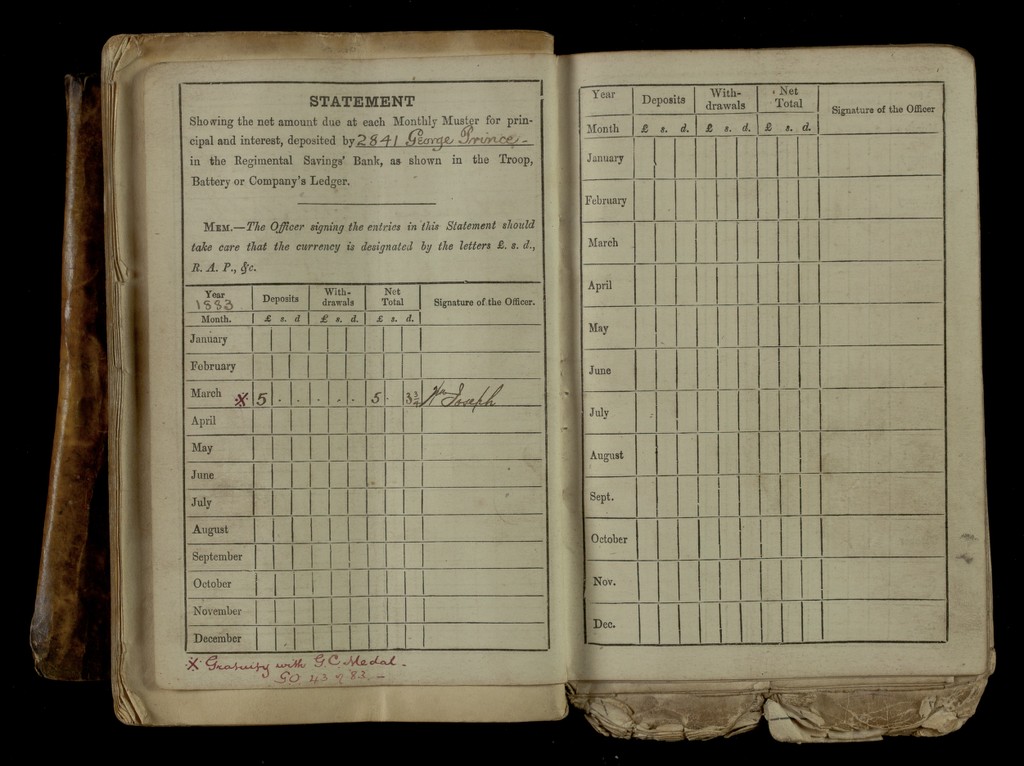 STATEMENT
Showing the net amount due at each Monthly Muster for prin-
cipal and interest, deposited by 2841 George Prince -
in the Regimental Savings' Bank, as shown in the Troop,
Battery or Company's Ledger.
MEM.—The Officer signing the entries in this Statement should
take care that the currency is designated by the letters £. s. d.,
R. A. P., &c.
Year 1883 Deposits With-drawals Net Total Signature of the Officer.
Month. £ s. d £ s. d. £ s. d.
January
February
March X 5 . . . . . 5 . 3 3/4 Wm Joseph
April
May
June
July
August
September
October
November
December
X Gratuity with G.C. Medal. -
GO 43 of 83. -
Year Deposits With-drawals Net Total Signature of the Officer
Month £ s. d. £ s. d. £ s. d.
January
February
March
April
May
June
July
August
Sept.
October
Nov.
Dec.